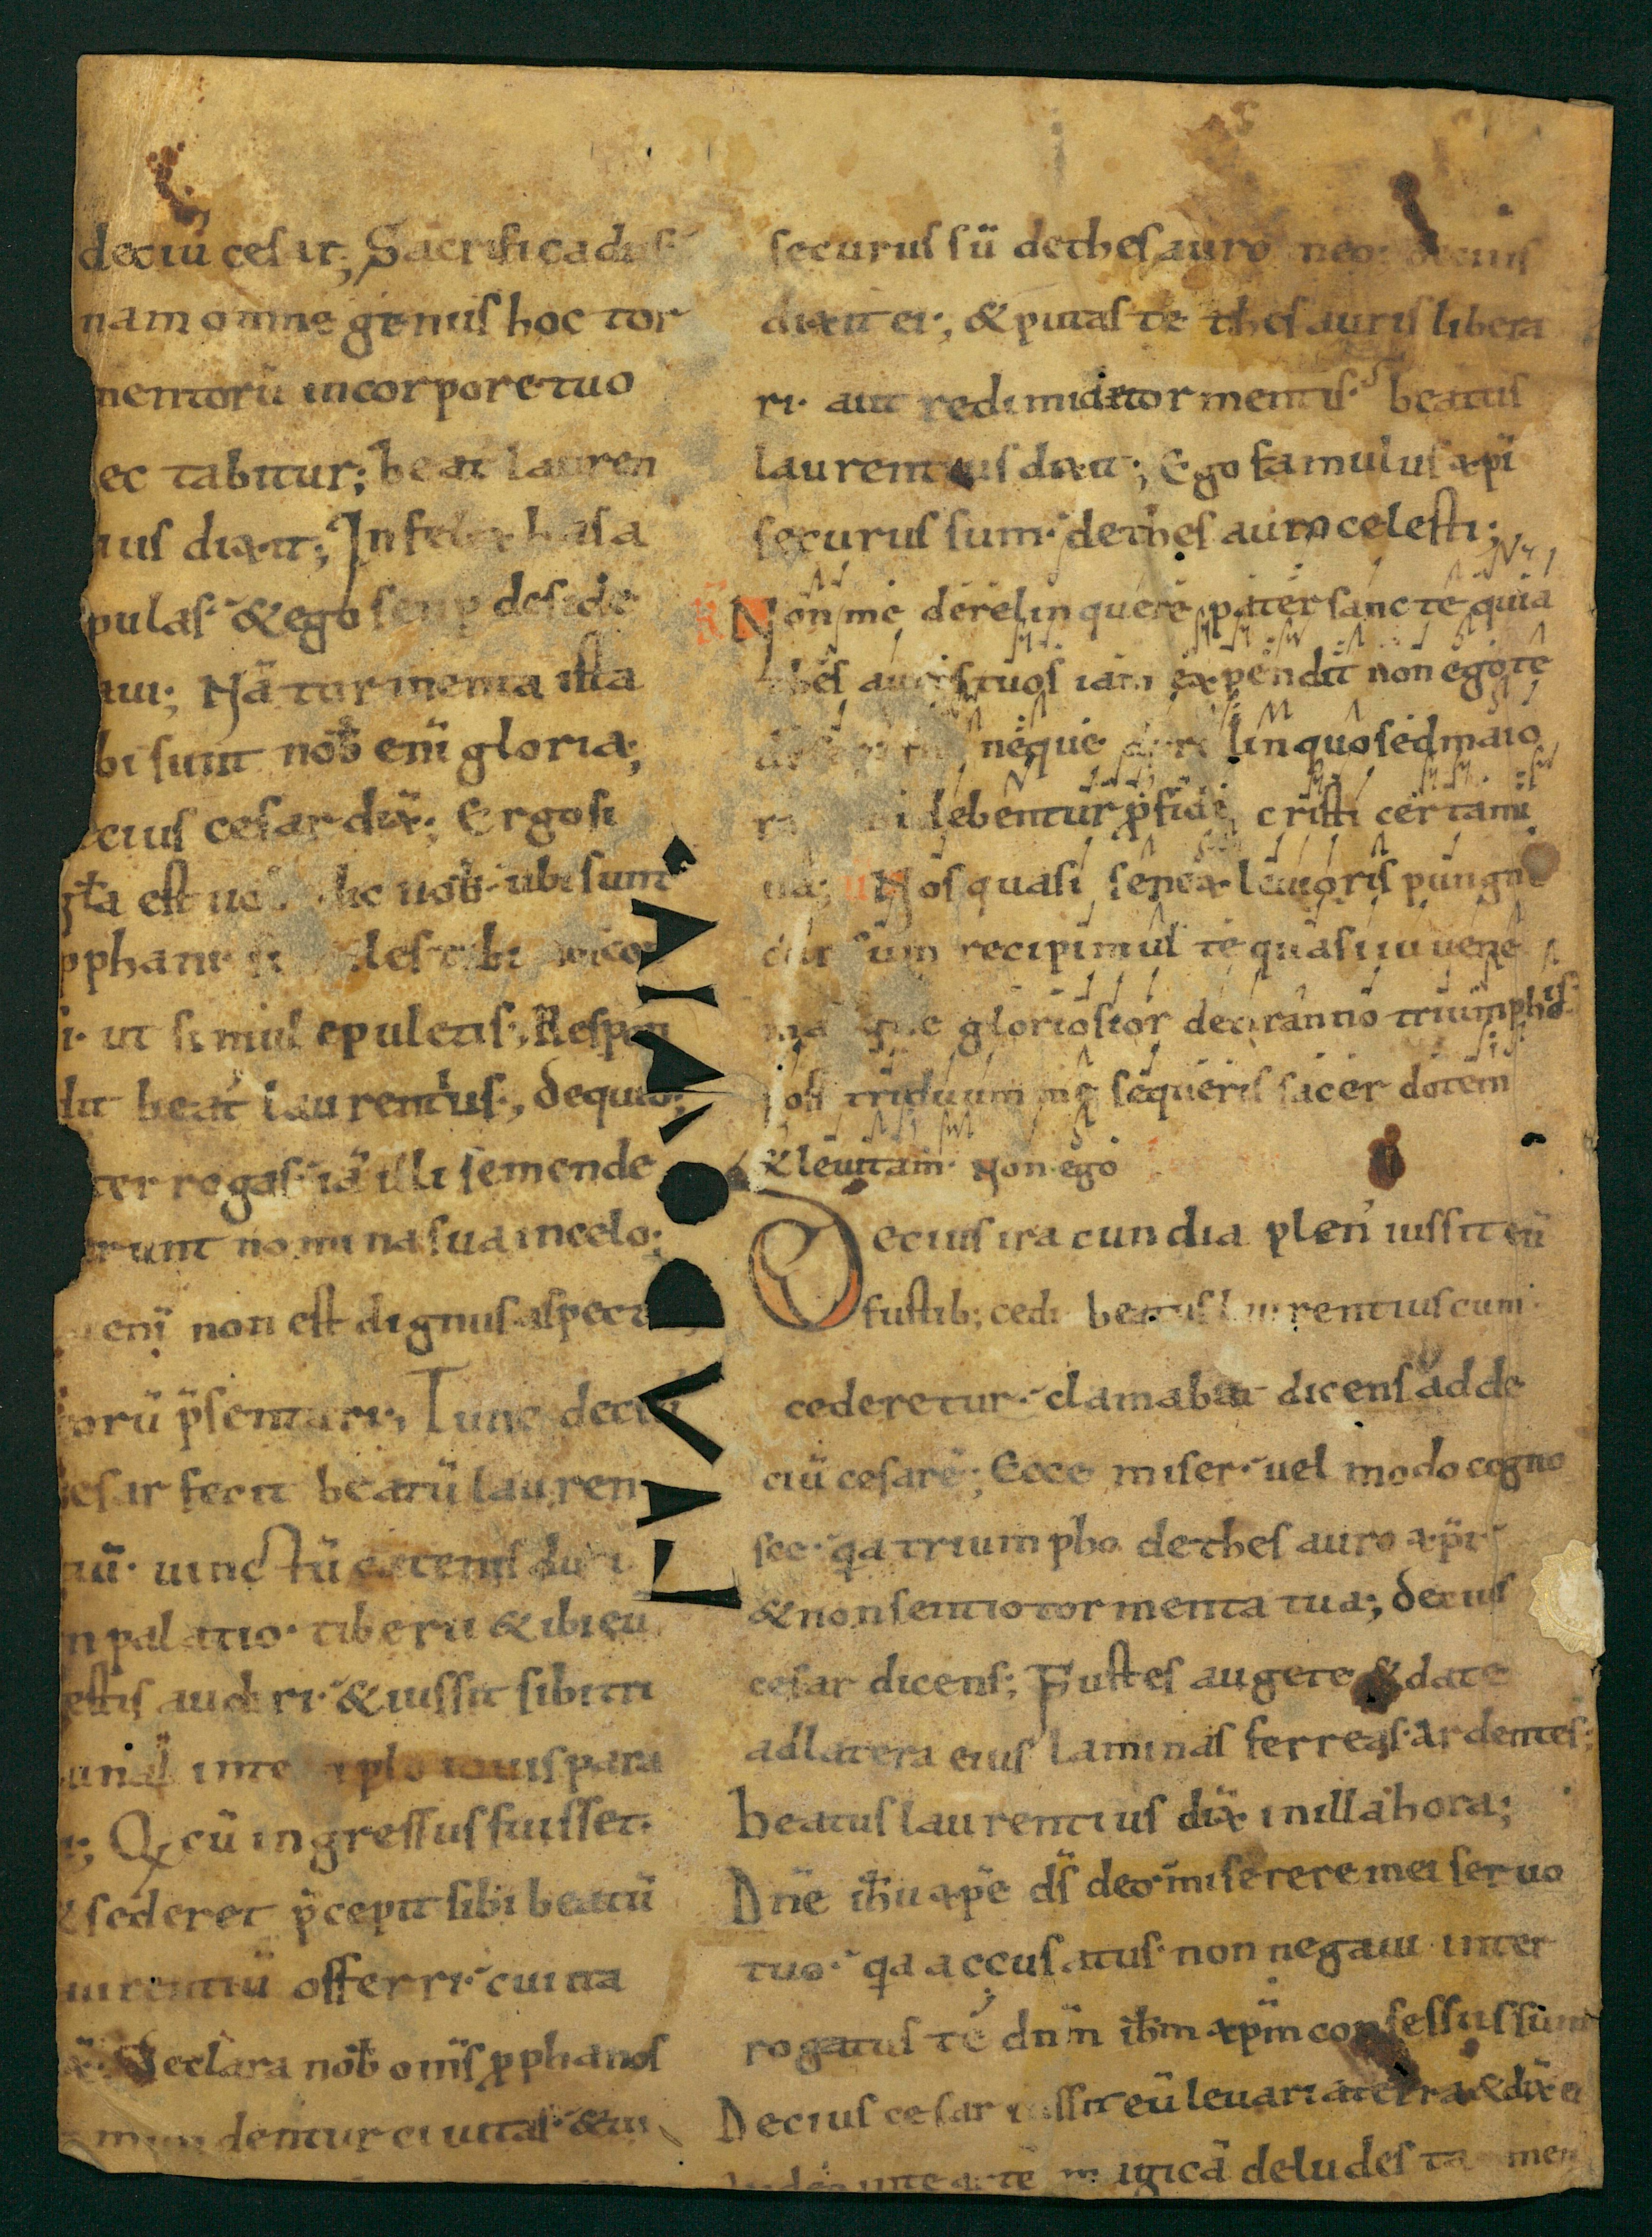 deciū cesar; Sacrifica diis
nam omne genus hoc tor
mentorū incorpore tuo
ec tabitur; beat lauren
ius dixit; Infelix has a
pulas & ego semp deside
aui; Nā tormenta ista
bi sunt nob enī gloria;
ecius cesar dix; Ergo si
est ubi sunt
pphani
i ut simul epuletis; Respon
dit beat laurentius; dequio;
ter rogas iā illi semende
runt nomina sua incelo;
enī non est dignus aspec
orū psentari; Tunc deciu
esar fecit beatū lauren
tiū uinctū catenis duci
n palatio tiberii & ibi eū
estis audiri & iussit sibi tri
unal intemplo iouis para
i; Qi cū ingressus fuisset
& sederet pcepit sibi beatū
aurentiū offerri cui ita
x Declara nob omīs pphanos
mundentur ciuitas & tu
securus sū dethesauro meo decius
dixit ei; & putas te thesauris libera
ri aut redimi a tormentis beatus
laurentius dixit; Ego famulus xpi
securus sum dethesauro celesti;
Non me derelinquere pater sancte quia
thesauros tuos iam expendit non ego te
desero fili neque derelinquo sed maio
ra tibi debentur p fide cristi certami
na; Nos quasi senex leuioris pungne
cursum recipimus te quasi iuuene
manet gloriosior detiranno triumphus
post triduum me sequeris sacerdotem
& leuitam Non ego
Decius iracundia plen iussit eū
fustib; cedi beatus laurentius cum
cederetur clamabat dicens ad de
ciū cesarē; Ecce miser uel modo cogno
sce qa triumpho dethesauro xpi
& non sentio tormenta tua; decius
cesar dicens; Fustes augete & date
ad latera eius laminas ferreas ardentes;
beatus laurentius dix inilla hora;
Dnē ihu xpe ds deo miserere mei seruo
tuo qa accusatus non negaui inter
rogatus te dnm ihm xpm confessus sum
Decius cesar iussit eū leuari a terra & dix ei
arte magicā deludes tamen
LAVDOMVIA